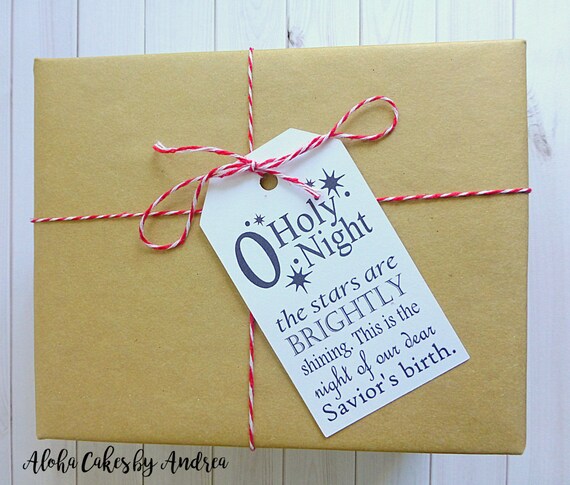 O Holy
Night
the stars are
BRIGHTLY
shining. This is the
night of our dear
Savior's birth.
Aloha Cakes by Andrea